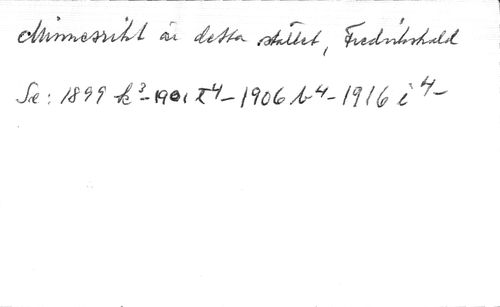 Minnesrikt är detta stället, Fredrikshald
Se: 1899 k³-1901 t⁴-1906 b⁴-1916 i⁴-